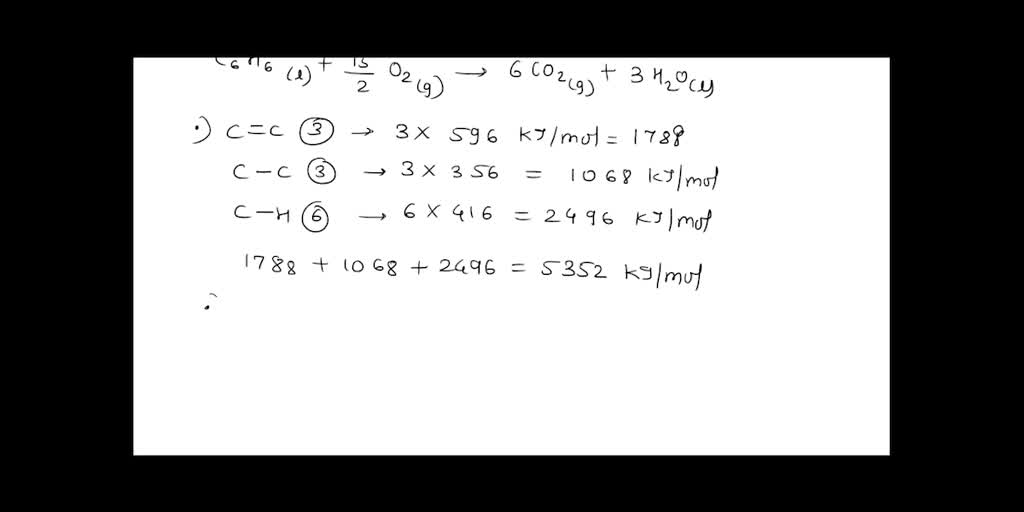 C6H6 (l) + 15/2 O2 (g) → 6 CO2 (g) + 3 H2O (l)
•) C=C ③ → 3 × 596 kJ/mol = 1788
C-C ③ → 3 × 356 = 1068 kJ/mol
C-H ⑥ → 6 × 416 = 2496 kJ/mol
1788 + 1068 + 2496 = 5352 kJ/mol